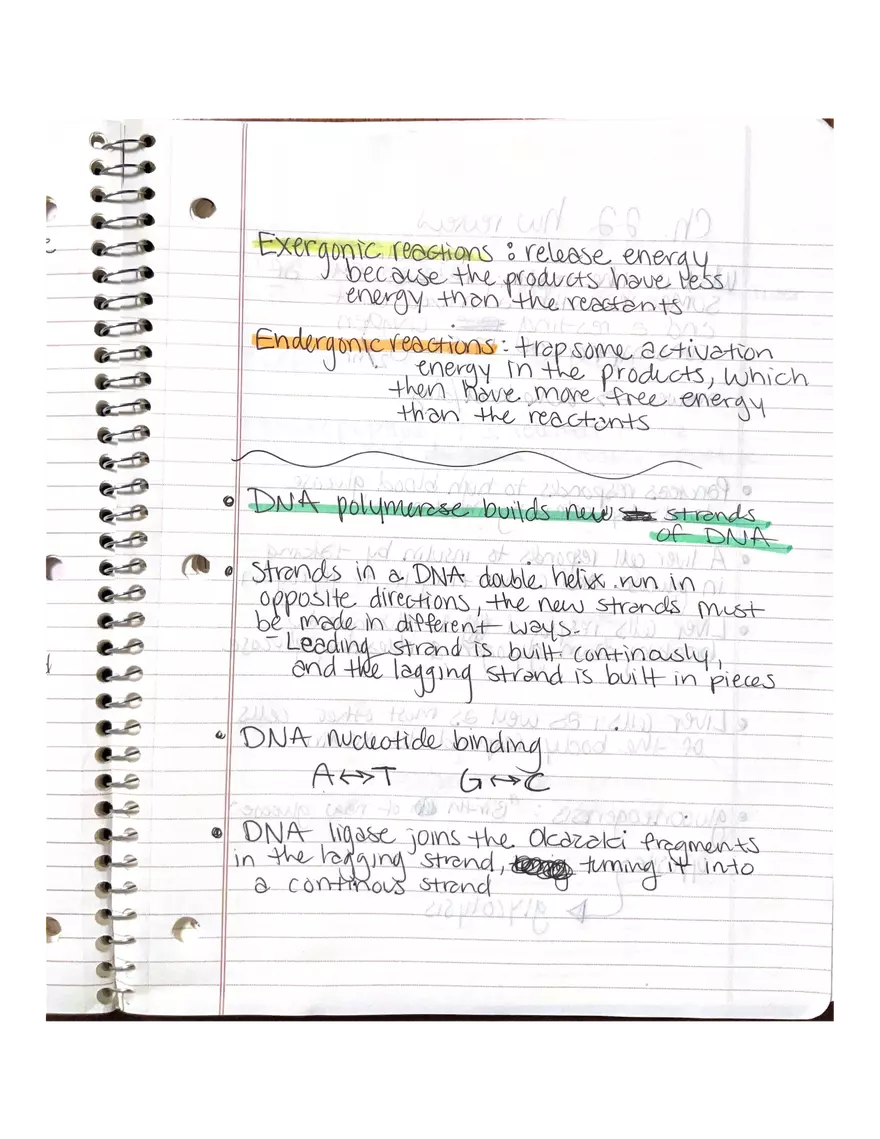 Exergonic reactions : release energy
because the products have less
energy than the reactants
Endergonic reactions : trap some activation
energy in the products, which
then have more free energy
than the reactants
• DNA polymerase builds new strands
of DNA
• Strands in a DNA double helix run in
opposite directions, the new strands must
be made in different ways.
- Leading strand is built continously,
and the lagging strand is built in pieces
• DNA nucleotide binding
A ↔ T G ↔ C
• DNA ligase joins the Okazaki fragments
in the lagging strand, turning it into
a continous strand